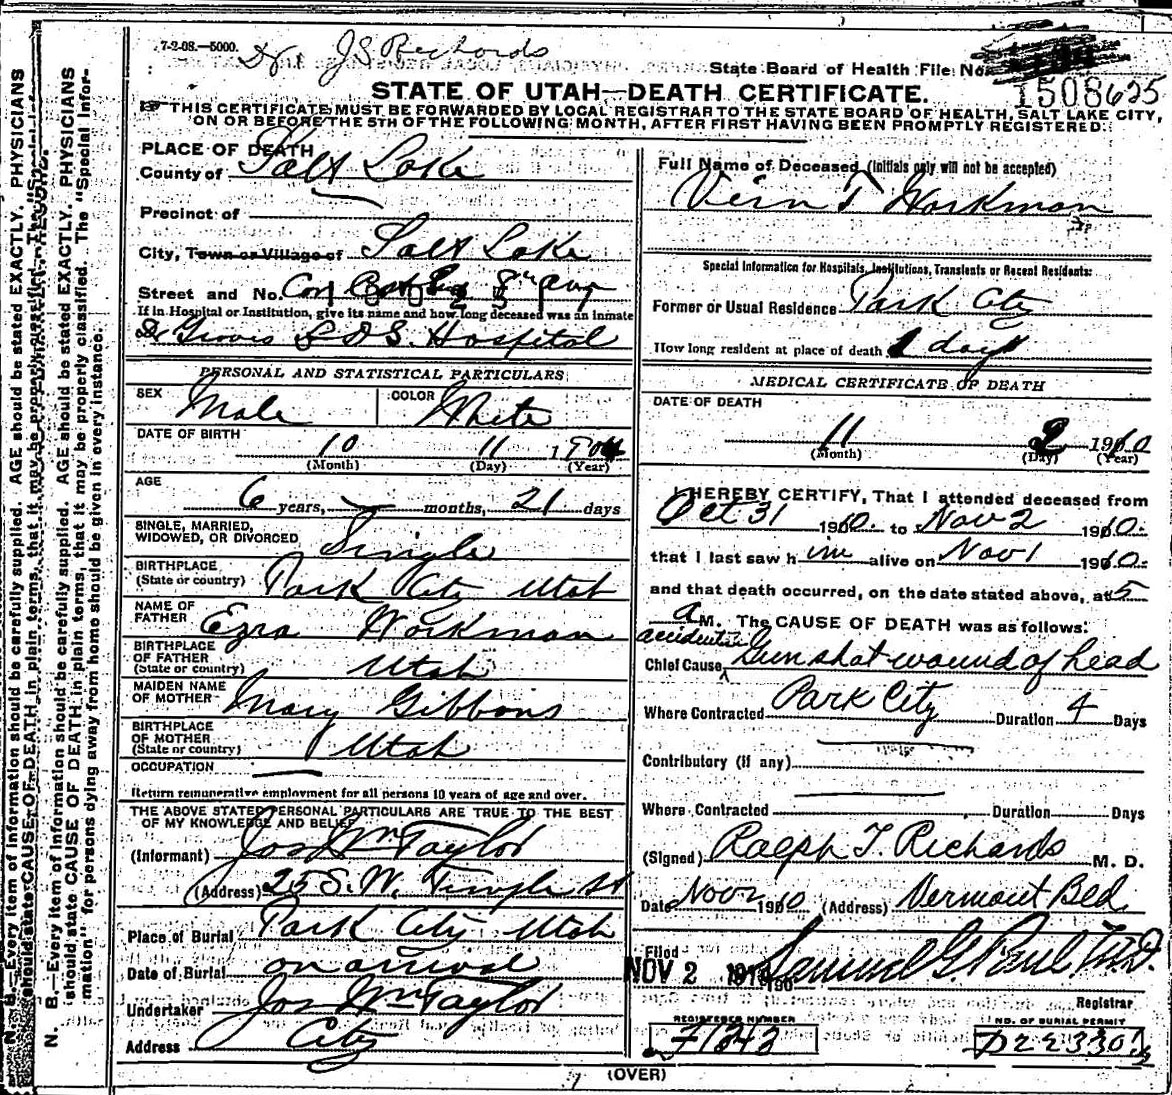 7-2-08.—5000.
Dr. J S Richards
State Board of Health File No.
1508625
STATE OF UTAH—DEATH CERTIFICATE.
THIS CERTIFICATE MUST BE FORWARDED BY LOCAL REGISTRAR TO THE STATE BOARD OF HEALTH, SALT LAKE CITY,
ON OR BEFORE THE 5TH OF THE FOLLOWING MONTH, AFTER FIRST HAVING BEEN PROMPTLY REGISTERED.
PLACE OF DEATH
County of Salt Lake
Precinct of
City, Town or Village of Salt Lake
Street and No. Cor 8th Ave
If in Hospital or Institution, give its name and how long deceased was an inmate
L D S. Hospital
PERSONAL AND STATISTICAL PARTICULARS
SEX Male COLOR White
DATE OF BIRTH 10 11 1904
(Month) (Day) (Year)
AGE 6 years, — months, 21 days
SINGLE, MARRIED,
WIDOWED, OR DIVORCED Single
BIRTHPLACE
(State or country) Park City Utah
NAME OF
FATHER Ezra Workman
BIRTHPLACE
OF FATHER
(State or country) Utah
MAIDEN NAME
OF MOTHER Mary Gibbons
BIRTHPLACE
OF MOTHER
(State or country) Utah
OCCUPATION —
Return remunerative employment for all persons 10 years of age and over.
THE ABOVE STATED PERSONAL PARTICULARS ARE TRUE TO THE BEST
OF MY KNOWLEDGE AND BELIEF
(Informant) Jos Wm Taylor
(Address) 25 S. W. Temple St
Place of Burial Park City Utah
Date of Burial on arrival
Undertaker Jos Wm Taylor
Address City
Full Name of Deceased (Initials only will not be accepted)
Vern T Workman
Special Information for Hospitals, Institutions, Transients or Recent Residents:
Former or Usual Residence Park City
How long resident at place of death 1 day
MEDICAL CERTIFICATE OF DEATH
DATE OF DEATH
11 2 1910
(Month) (Day) (Year)
I HEREBY CERTIFY, That I attended deceased from
Oct 31 1910. to Nov 2 1910.
that I last saw him alive on Nov 1 1910.
and that death occurred, on the date stated above, at 5
a M. The CAUSE OF DEATH was as follows:
accidental
Chief Cause Gun shot wound of head
Where Contracted Park City Duration 4 Days
Contributory (if any)
Where Contracted Duration Days
(Signed) Ralph T Richards M. D.
Date Nov 2 1910 (Address) Vermont Bld
Filed
NOV 2 1910 Samuel G Paul M.D.
Registrar
REGISTERED NUMBER NO. OF BURIAL PERMIT
71343 D22330
(OVER)
N. B.—Every item of information should be carefully supplied. AGE should be stated EXACTLY. PHYSICIANS
should state CAUSE OF DEATH in plain terms, that it may be properly classified. The "Special Infor-
mation" for persons dying away from home should be given in every instance.